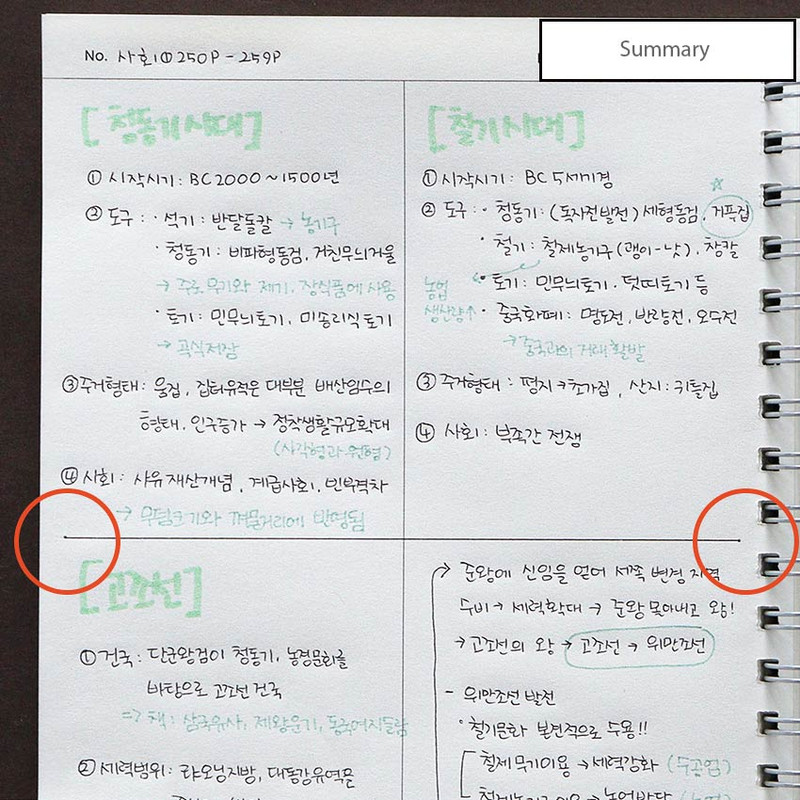 No. 사회① 250P - 259P
Summary
[청동기시대]
① 시작시기 : BC 2000 ~ 1500년
② 도구 : · 석기 : 반달돌칼 → 농기구
· 청동기 : 비파형동검, 거친무늬거울
→ 주로 무기와 제기, 장식품에 사용
· 토기 : 민무늬토기, 미송리식 토기
→ 곡식저장
③ 주거형태 : 움집, 집터유적은 대부분 배산임수의
형태, 인구증가 → 정착생활규모확대
(사각형과 원형)
④ 사회 : 사유재산개념, 계급사회, 빈부격차
→ 무덤크기와 껴묻거리에 반영됨
[철기시대]
① 시작시기 : BC 5세기경
② 도구 : · 청동기 : (독자적발전) 세형동검, 거푸집
· 철기 : 철제농기구 (괭이-낫), 창칼
농업
생산량↑
· 토기 : 민무늬토기 · 덧띠토기 등
· 중국화폐 : 명도전, 반량전, 오수전
→ 중국과의 거래 활발
③ 주거형태 : 평지 → 초가집, 산지 : 귀틀집
④ 사회 : 부족간 전쟁
[고조선]
① 건국 : 단군왕검이 청동기, 농경문화를
바탕으로 고조선 건국
⇒ 책 : 삼국유사, 제왕운기, 동국여지승람
② 세력범위 : 랴오닝지방, 대동강유역
→ 준왕에 신임을 얻어 서쪽 변경 지역
수비 → 세력확대 → 준왕 몰아내고 왕!
→ 고조선의 왕 → 고조선 → 위만조선
- 위만조선 발전
· 철기문화 본격적으로 수용!!
철제무기이용 → 세력강화 (수공업)
철제농기구이용 → 농업발달